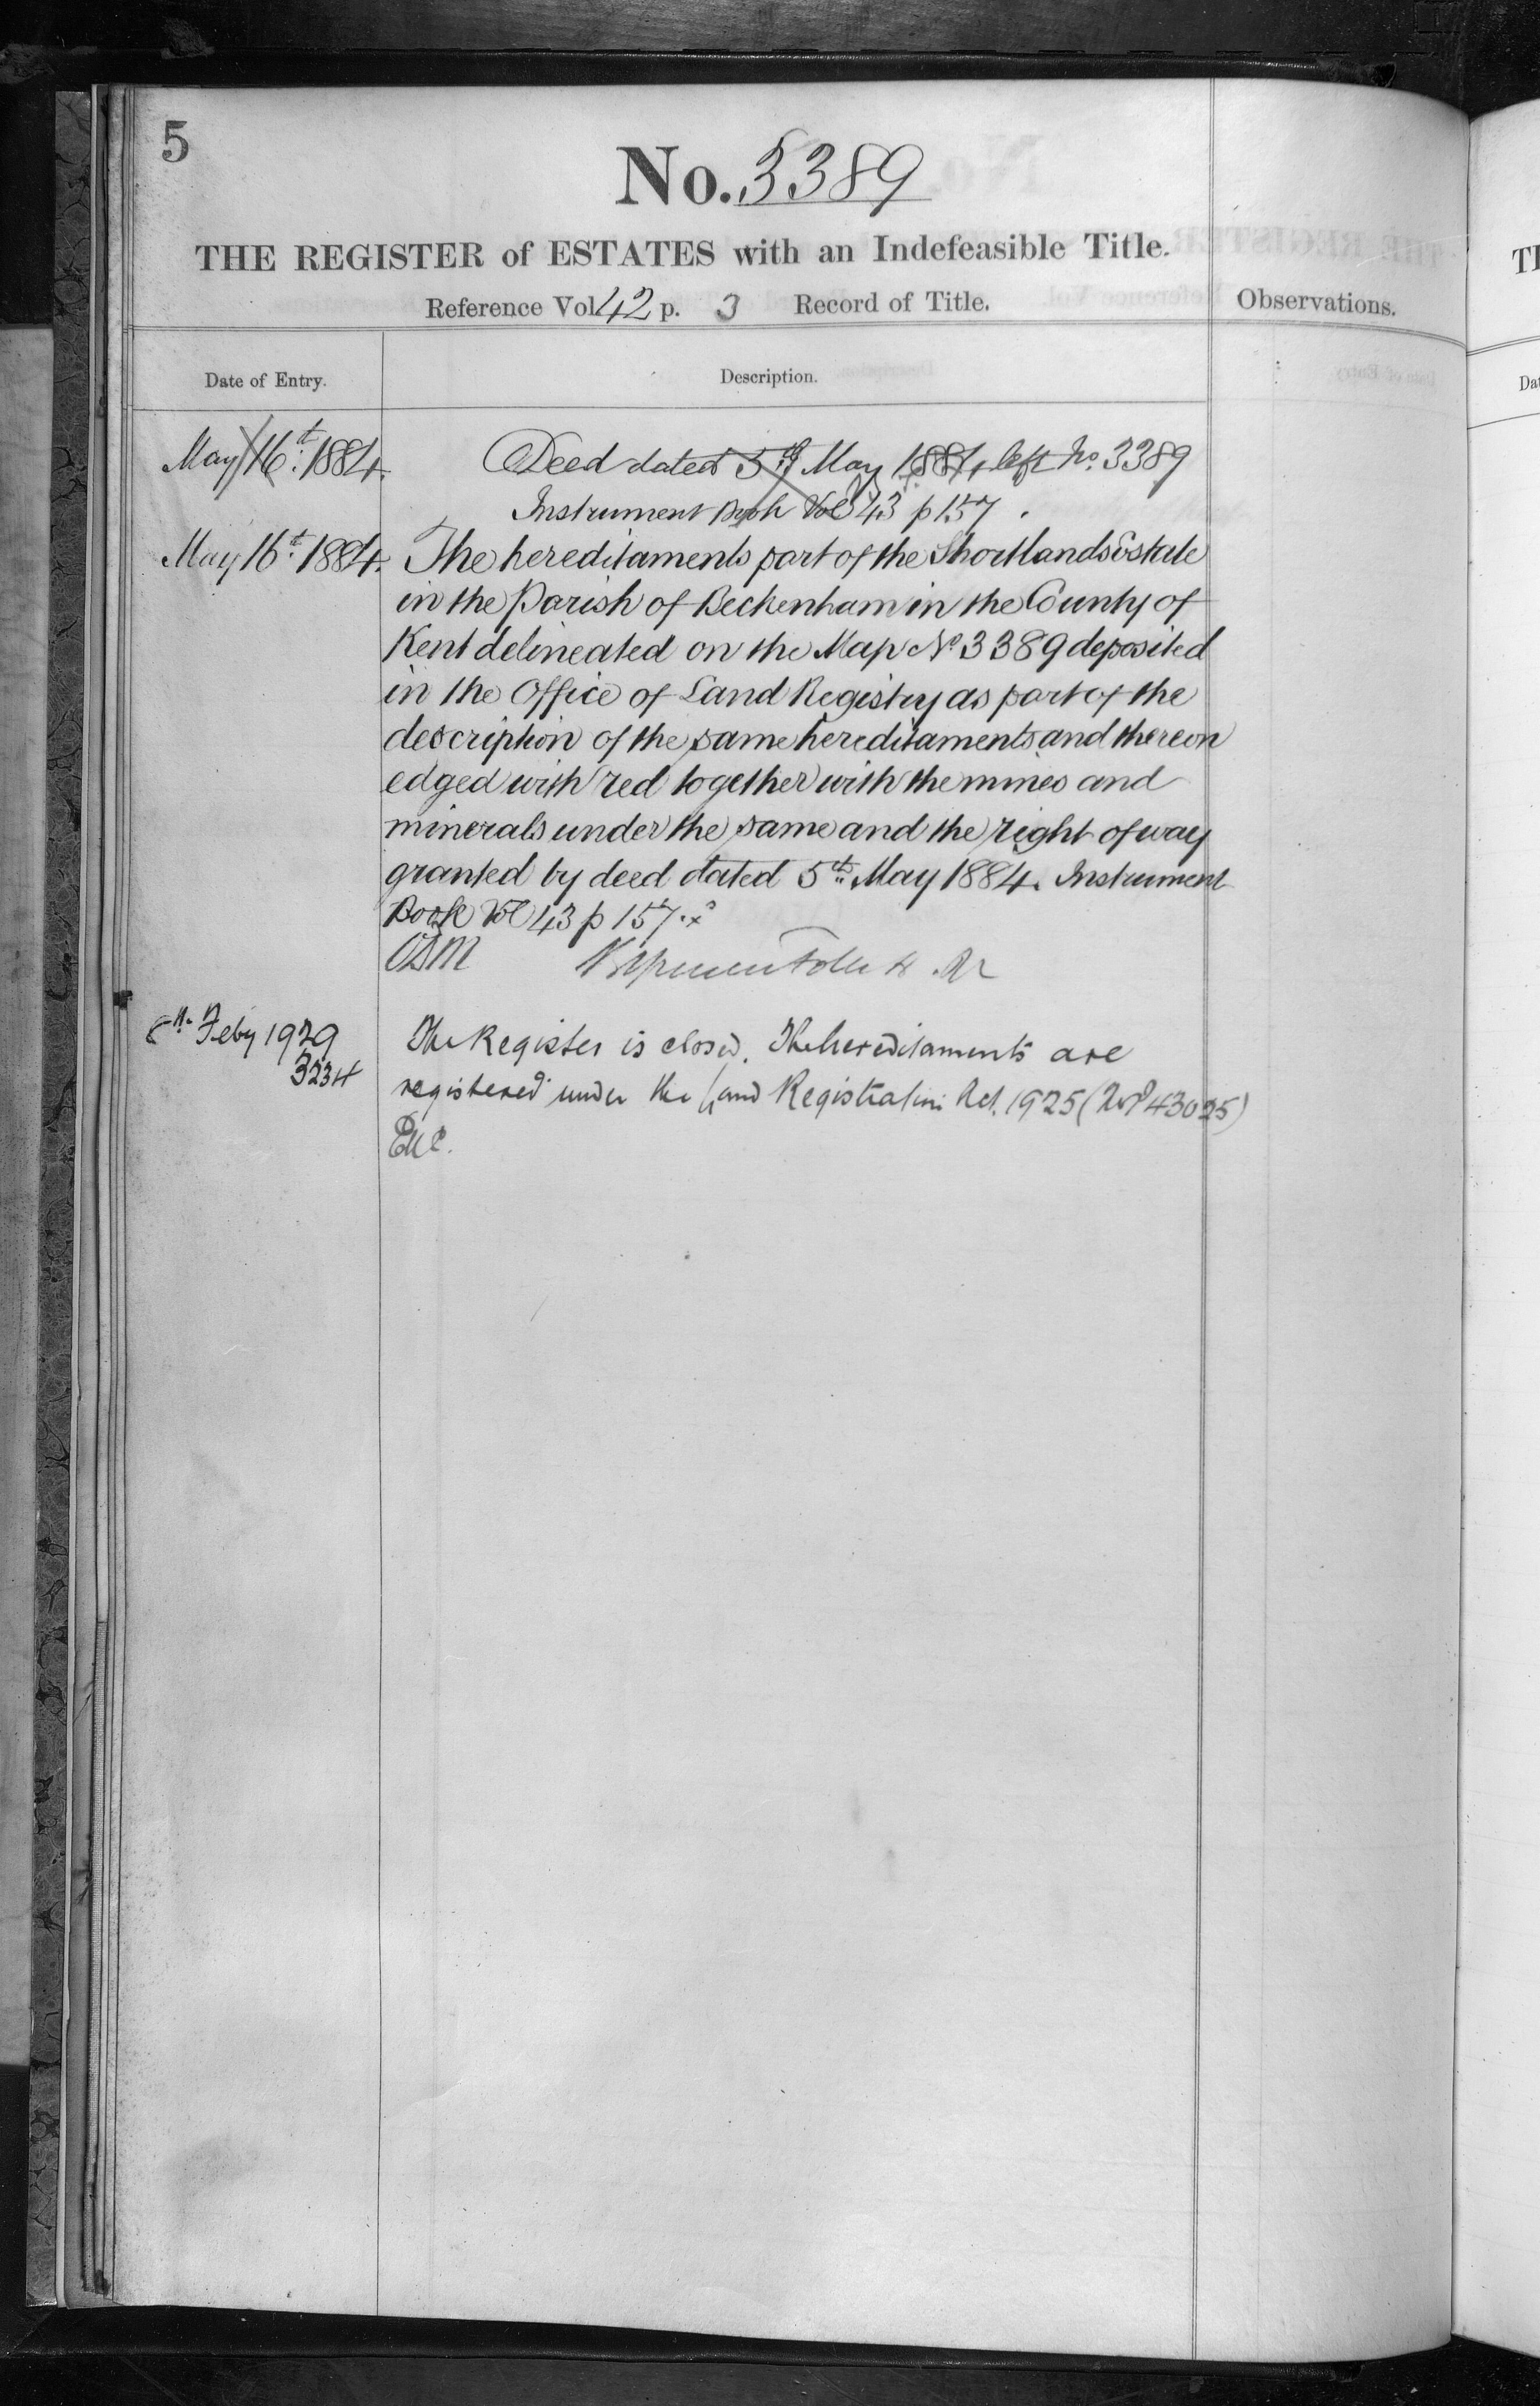 5
No. 3389
THE REGISTER of ESTATES with an Indefeasible Title.
Reference Vol 42 p. 3 Record of Title.
Observations.
Date of Entry.
Description.
May 16th. 1884.
Deed dated 5th May 1884 left No. 3389
Instrument Book Vol 43 p 157.
May 16th. 1884.
The hereditaments part of the Shortlands Estate
in the Parish of Beckenham in the County of
Kent delineated on the Map No 3389 deposited
in the Office of Land Registry as part of the
description of the same hereditaments and thereon
edged with red together with the mines and
minerals under the same and the right of way
granted by deed dated 5th. May 1884. Instrument
Book Vol 43 p 157.
Feby 1929
3234
The Register is closed. The hereditaments are
registered under the Land Registration Act. 1925 (43025)